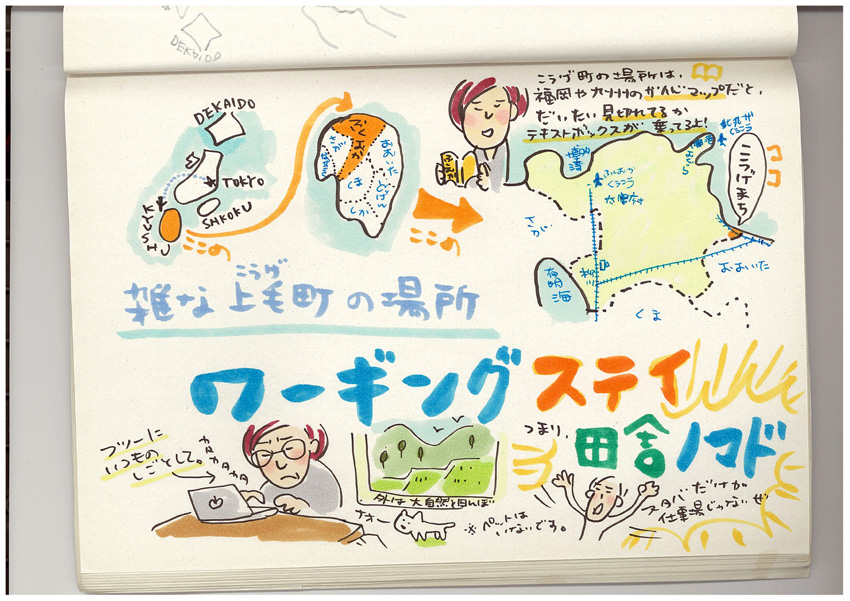 DEKAIDO
DEKAIDO
TOKYO
SHKOKU
KYUSHU
ココの
ふくおか
さが
おおいた
くま
ココの
こうげ町の場所は、
福岡や九州のかんじマップだと、
だいたい見切れてるか
テキストボックスが乗ってるよ!
北九州
くうこう
ふくおか
くうこう
太宰府
こうげまち
ココ
さが
柳川
有明海
おおいた
くま
こうげ
雑な上毛町の場所
ワーキングステイ
つまり、田舎ノマド
フツーに
いつもの
しごとして。
カタカタカタ
外は大自然と田んぼ
ナオー
※ペットは
いないです。
スタバだけが
仕事場じゃないぜ